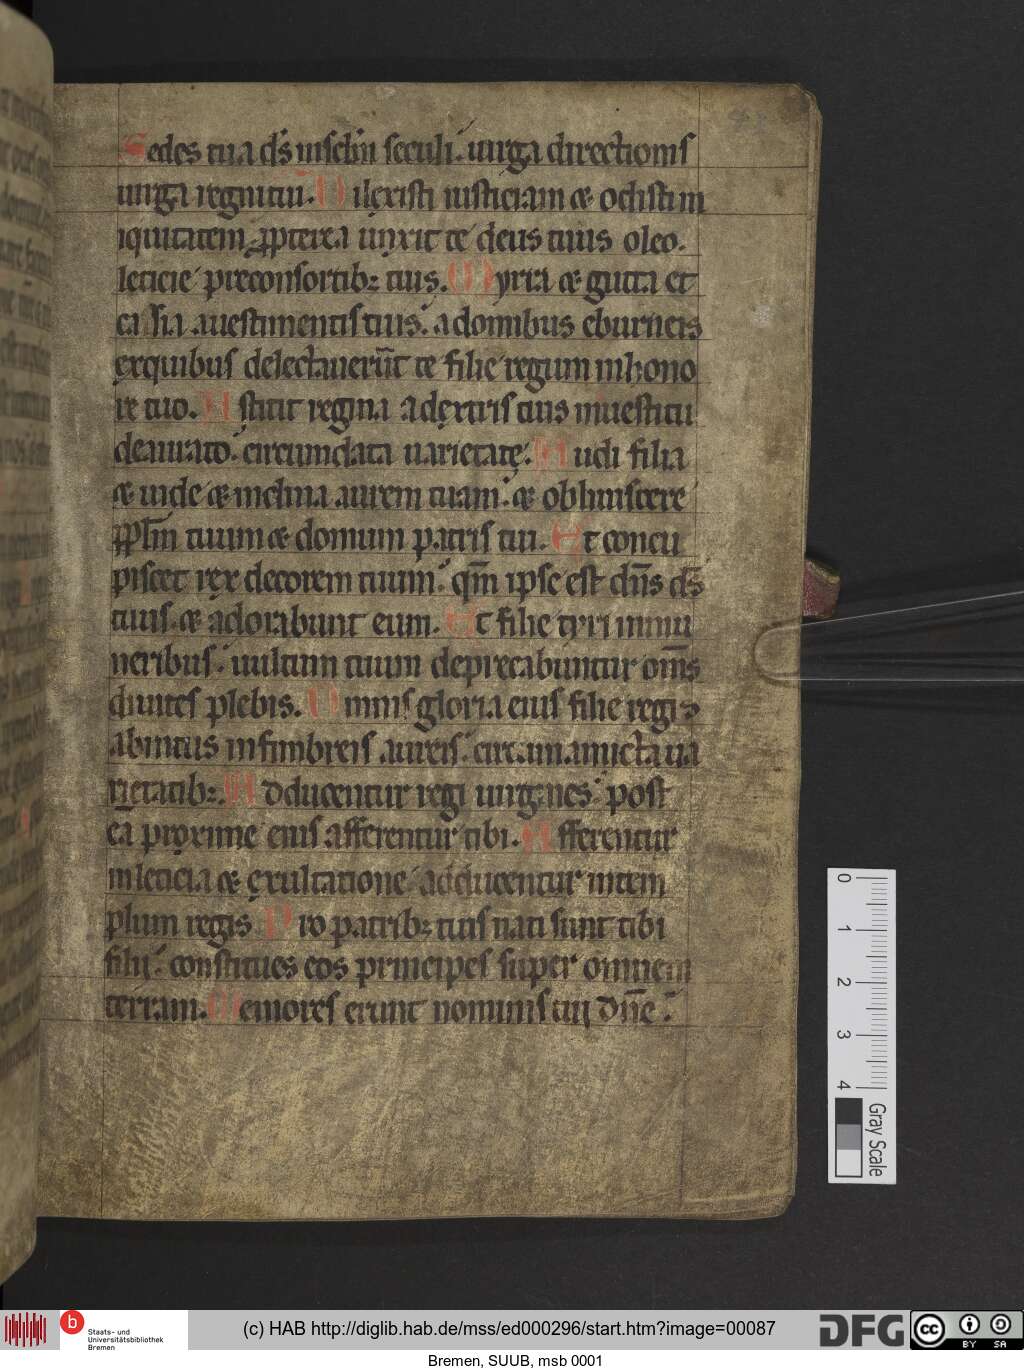 Sedes tua ds̄ insclm̄ seculi. uirga directionis
uirga regni tui. Dilexisti iusticiam & odisti in
iquitatem, ꝓpterea unxit te deus tuus oleo.
leticie preconsortib; tuis. Myrra & gutta et
casia auestimentis tuis. adomibus eburneis
exquibus delectauerūt te filie regum inhono
re tuo. Astitit regina adextris tuis inuestitu
deaurato. circumdata uarietate. Audi filia
& uide & inclina aurem tuam. & obliuiscere
pplm̄ tuum & domum patris tui. Et concu
piscet rex decorem tuum. qm̄ ipse est dn̄s ds̄
tuus. & adorabunt eum. Et filie tyri inmu
neribus. uultum tuum deprecabuntur om̄s
diuites plebis. Omnis gloria eius filie regis
abintus infimbreis aureis. circumamicta ua
rietatib;. Adducentur regi uirgines. post
eā proxime eius afferentur tibi. Afferentur
inleticia & exultatione. adducentur intem
plum regis Pro patrib; tuis nati sunt tibi
filij. constitues eos principes super omnem
terram. Memores erunt nominis tui dn̄e.
0
1
2
3
4
Gray Scale
b
Staats- und
Universitätsbibliothek
Bremen
(c) HAB http://diglib.hab.de/mss/ed000296/start.htm?image=00087
DFG
cc
BY SA
Bremen, SUUB, msb 0001